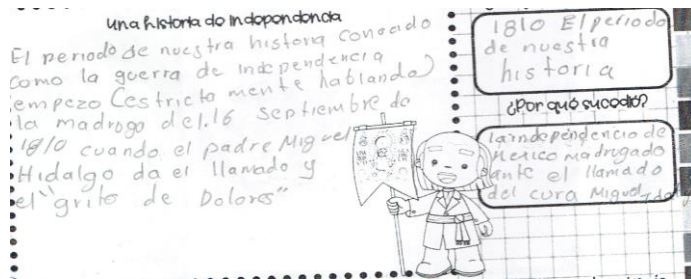 una historia de independencia
El periodo de nuestra historia conocido
como la guerra de independencia
empezo (estricta mente hablando)
la madrogo del.16 septiembre de
1810 cuando el padre Miguel
Hidalgo da el llamado y
el "grito de Dolores"
1810 El periodo
de nuestra
historia
¿Por qué sucedió?
la independencio de
Mexico madrugado
ante el llamado
del cura Miguel